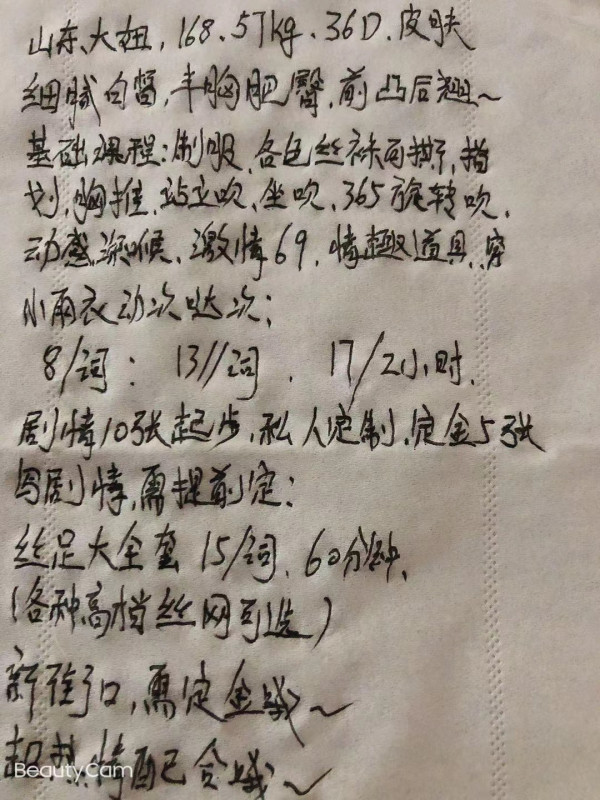 山东、大妞，168.57kg、36D.皮肤
细腻白皙，丰胸肥臀，前凸后翘～
基础课程：制服、各色丝袜可撕，指
划，胸推、站立吹、坐吹、365旋转吹，
动感深喉、激情69，情趣道具，穿
小雨衣动次哒次；
8/词：13//词．17/2小时．
剧情10张起步，私人定制，定金5张
写剧情，需提前定：
丝足大全套 15/词．60分钟，
（各种高档丝网可选）
新街口，需定金哦～
配合哦～
BeautyCam